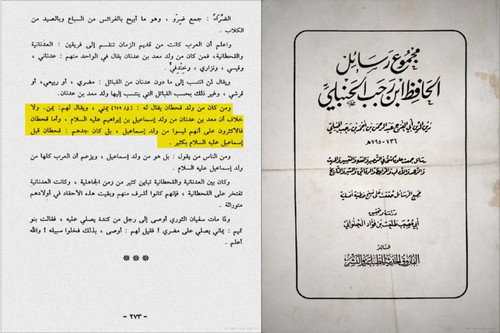 مجموع رسائل
الحافظ ابن رجب الحنبلي
زين الدين أبي الفرج عبد الرحمن بن أحمد بن رجب الحنبلي
٧٣٦-٧٩٥هـ
جميع الرسائل محققة على نسخ خطية نفيسة
دراسة وتحقيق
أبي مصعب طلعت بن فؤاد الحلواني
الناشر
الفاروق الحديثة للطباعة والنشر
الضراء : جمع ضرو ، وهو ما أبيح بالفرائس من السباع وبالصيد من
الكلاب .
واعلم أن العرب كانت من قديم الزمان تنقسم إلى فريقين : العدنانية
والقحطانية، فمن كان من ولد معد بن عدنان يقال في الواحد منهم : عدناني،
وقيسي ، ونزاري ، وخندفي .
ويقال لمن انتسب إلى ما دون عدنان من القبائل : مضري ، أو ربيعي، أو
قرشي ، وغير ذلك بحسب القبائل التي ينتسب إليها ولد معد بن عدنان.
ومن كان من ولد قحطان يقال له : (ق١٦٩) يمني ، ويقال لهم: يمن. ولا
خلاف أن معد بن عدنان من ولد إسماعيل بن إبراهيم عليه السلام ، وأما قحطان
فالأكثرون على أنهم ليسوا من ولد إسماعيل ، بل كان جدهم : قحطان قبل
إسماعيل عليه السلام بكثير .
ومن الناس من يقول : بل هو من ولد إسماعيل ، ويزعم أن العرب كلها من
ولد إسماعيل عليه السلام .
وكان بين العدنانية والقحطانية تباين كثير من زمن الجاهلية ، وكانت العدنانية
تفتخر على القحطانية ، فإنهم كانوا أشرف منهم وبقيت هذه الأحقاد في أولادهم
متوارثة .
ولما مات سفيان الثوري أوصى إلى رجل من كندة يصلي عليه ، فقالت بنو
تميم : يماني يصلي على مضري ! فقيل لهم : أوصى ، بذلك فخلوا سبيله ! والله
أعلم .
***
- ٢٧٣ -